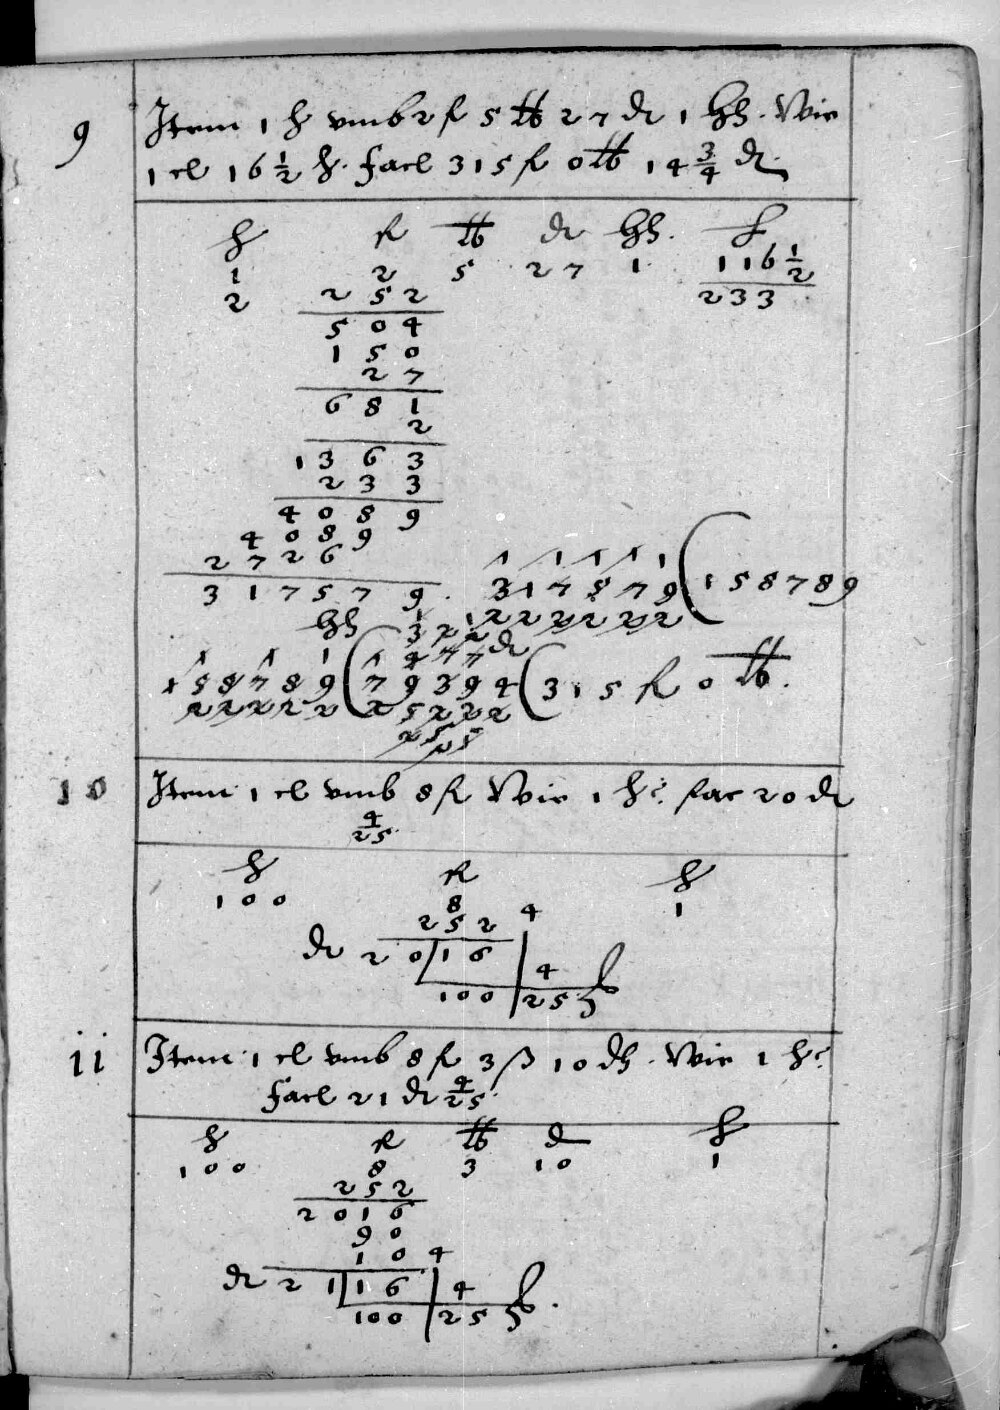 9 Item 1 ℔ vmb 2 fl 5 ß 27 dr 1 hh. Wie
1 cl 16 1/2 ℔. facl 315 fl 0 ß 14 3/4 dr.
℔ fl ß dr hh. ℔
1 2 5 27 1 116 1/2
2 252 233
504
150
27
681
2
1363
233
4089
4089
2726
317579. 317579 ( 158789
hh dr
158789 ( 79394 ( 315 fl 0 ß.
10 Item 1 cl vmb 8 fl Wie 1 ℔. fac 20 dr
4/25.
℔ fl ℔
100 8 1
252 4
dr 20 | 16 | 4
100 | 25
11 Item 1 cl vmb 8 fl 3 ß 10 dh. Wie 1 ℔.
facl 21 dr 4/25.
℔ fl ß d ℔
100 8 3 10 1
252
2016
90
10 4
dr 21 | 16 | 4
100 | 25